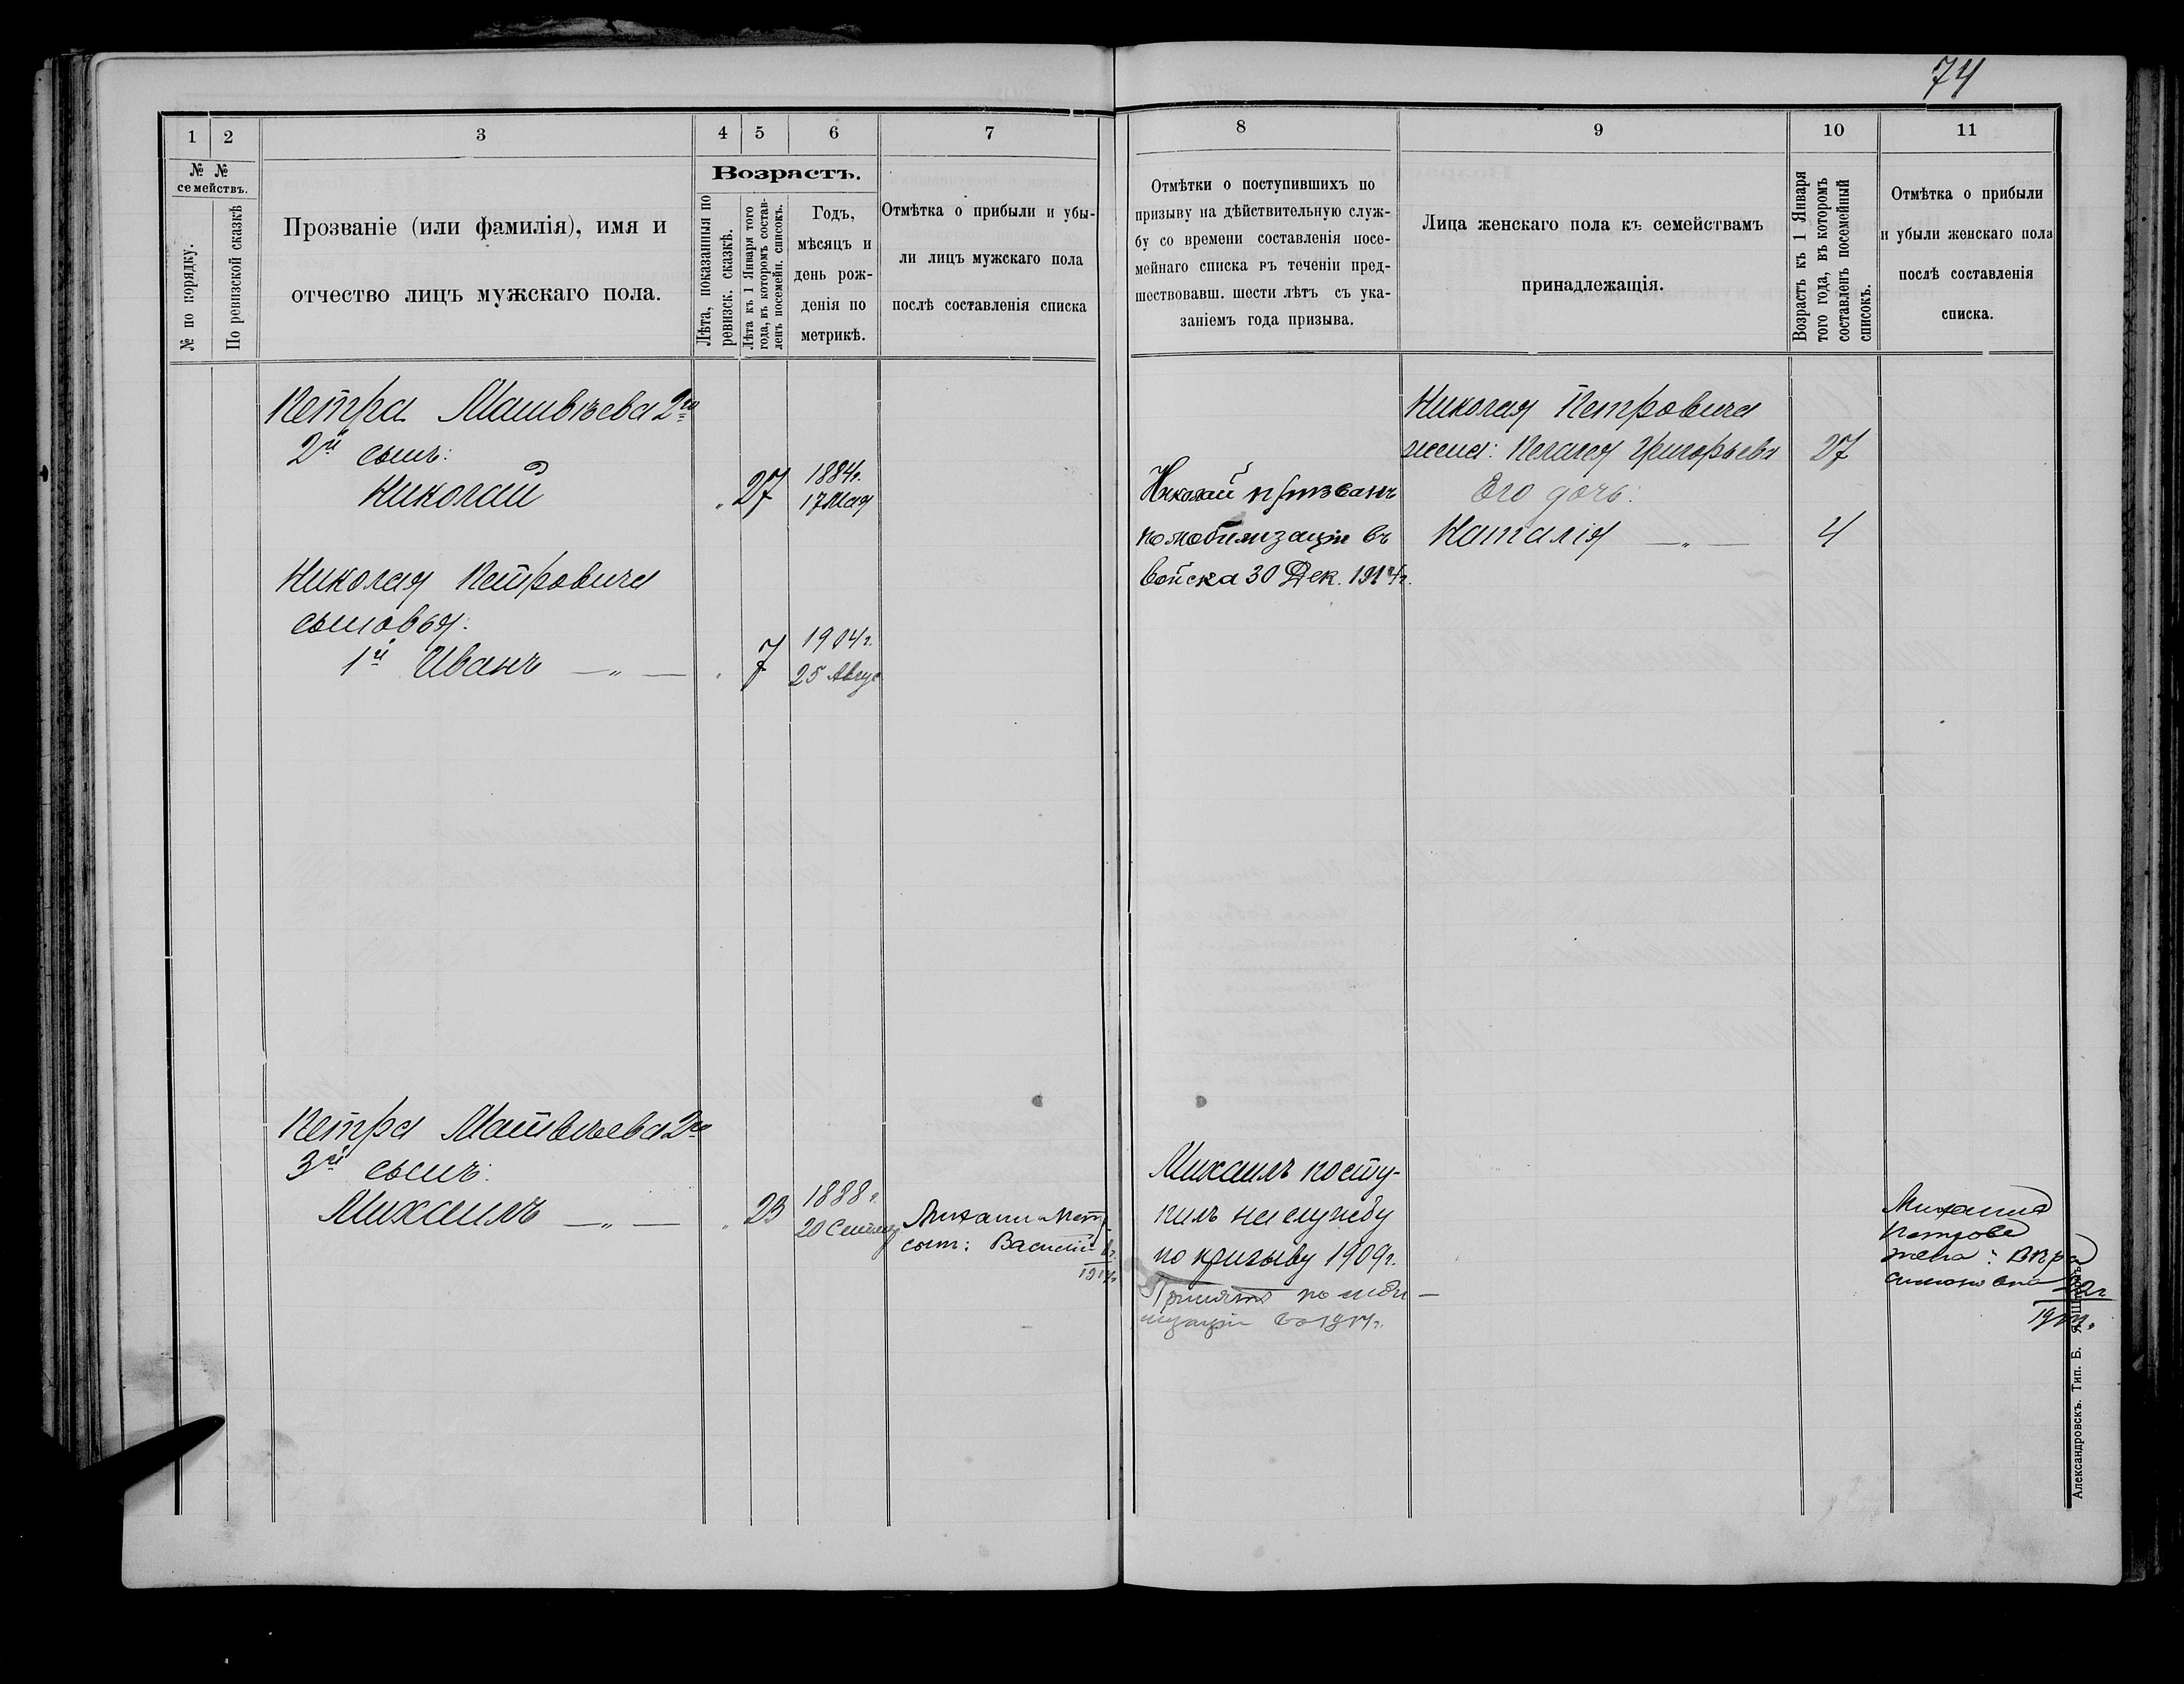 74
1 2 3 4 5 6 7
№ №
семействъ.
№ по порядку.
По ревизской сказкѣ
Прозваніе (или фамилія), имя и
отчество лицъ мужскаго пола.
Возрастъ.
Лѣта, показанныя по
ревизск. сказкѣ.
Лѣта къ 1 Января того
года, въ которомъ состав-
ленъ посемейн. списокъ.
Годъ,
мѣсяцъ и
день рож-
денія по
метрикѣ.
Отмѣтка о прибыли и убы-
ли лицъ мужскаго пола
послѣ составленія списка
Петра Матвѣева 2го
2й сынъ:
Николай " 27 1884г.
17 Мая
Николая Петровича
сыновья:
1й Иванъ — " — " 7 1904г.
25 Авгус
Петра Матвѣева 2го
3й сынъ:
Михаилъ — " — " 23 1888г.
20 Сентяб
Михаила Петр
сынъ: Василій
8 9 10 11
Отмѣтки о поступившихъ по
призыву на дѣйствительную служ-
бу со времени составленія посе-
мейнаго списка въ теченіи пред-
шествовавш. шести лѣтъ съ ука-
заніемъ года призыва.
Лица женскаго пола къ семействамъ
принадлежащія.
Возрастъ къ 1 Января
того года, въ которомъ
составленъ посемейный
списокъ.
Отмѣтка о прибыли
и убыли женскаго пола
послѣ составленія
списка.
Николая Петровича
жена: Пелагея Григорьева 27
Его дочь:
Наталія — " — 4
Николай призванъ
по мобилизаціи въ
войска 30 Дек. 1914г.
Михаилъ посту-
пилъ на службу
по призыву 1909г.
Принятъ по моби-
лизаціи въ 1914г.
Михаила
Петрова
жена: Вѣра
Симоновна
Александровскъ. Тип. Б. Я. Штернъ.